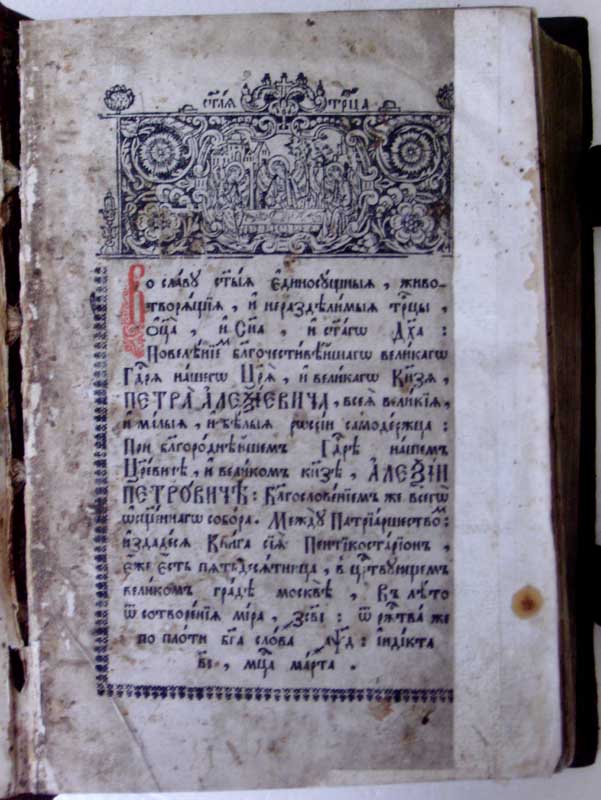 ст҃ы́ѧ трⷪ҇ца
Во славу ст҃ыѧ єдиносущныѧ, живо-
творѧщїѧ, и нераздѣлимыѧ трⷪ҇цы,
ѻц҃а, и сн҃а, и ст҃агѡ дх҃а:
Повелѣнїемъ благочестивѣйшагѡ великагѡ
гдⷭ҇рѧ нашегѡ цр҃ѧ, и великагѡ кн҃зѧ,
ПЕТРА АЛЕѮІЕВИЧА, всеѧ великїѧ,
и малыѧ, и бѣлыѧ рѡссїи самодержца:
При бл҃городнѣйшемъ гдⷭ҇рѣ нашемъ
цр҃евичѣ, и великомъ кн҃зѣ, АЛЕѮІИ
ПЕТРОВИЧѢ: Благословенїемъ же всегѡ
ѡсщ҃еннагѡ собора. Междꙋ Патрїаршествомъ:
издадесѧ Книга сїѧ Пентикостарїонъ,
єже єсть пѧтьдесѧтница, в цр҃ствующемъ
великомъ градѣ москвѣ, Въ лѣто
ѿ сотворенїѧ мїра, ҂зсві: ѿ ржⷭ҇тва же
по плоти бг҃а слова ҂аѱд: їндікта
ві, мцⷭ҇а марта.